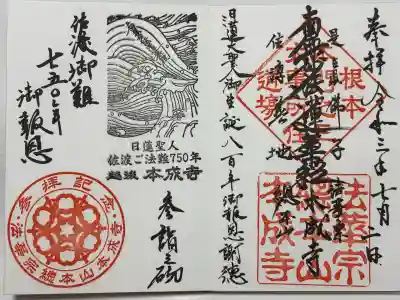 奉拝 令和三年七月二日
南無妙法蓮華経
本成寺
根本
道場
法華宗
総本山
本成寺
日蓮大聖人御生誕八百年御報恩謝徳
参詣之砌
日蓮聖人
佐渡ご法難750年
越後 本成寺
佐渡御難
七五〇年
御報恩
参拝記念
法華宗総本山本成寺